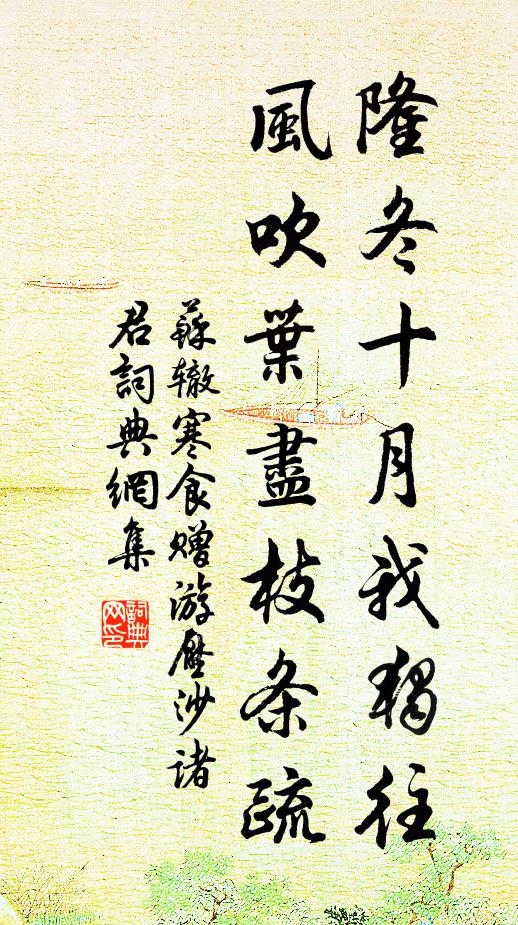 隆冬十月我獨往
風吹葉盡枝条疏
蘇辙寒食贈游壓沙诸
君詞典網集
詞典
网印